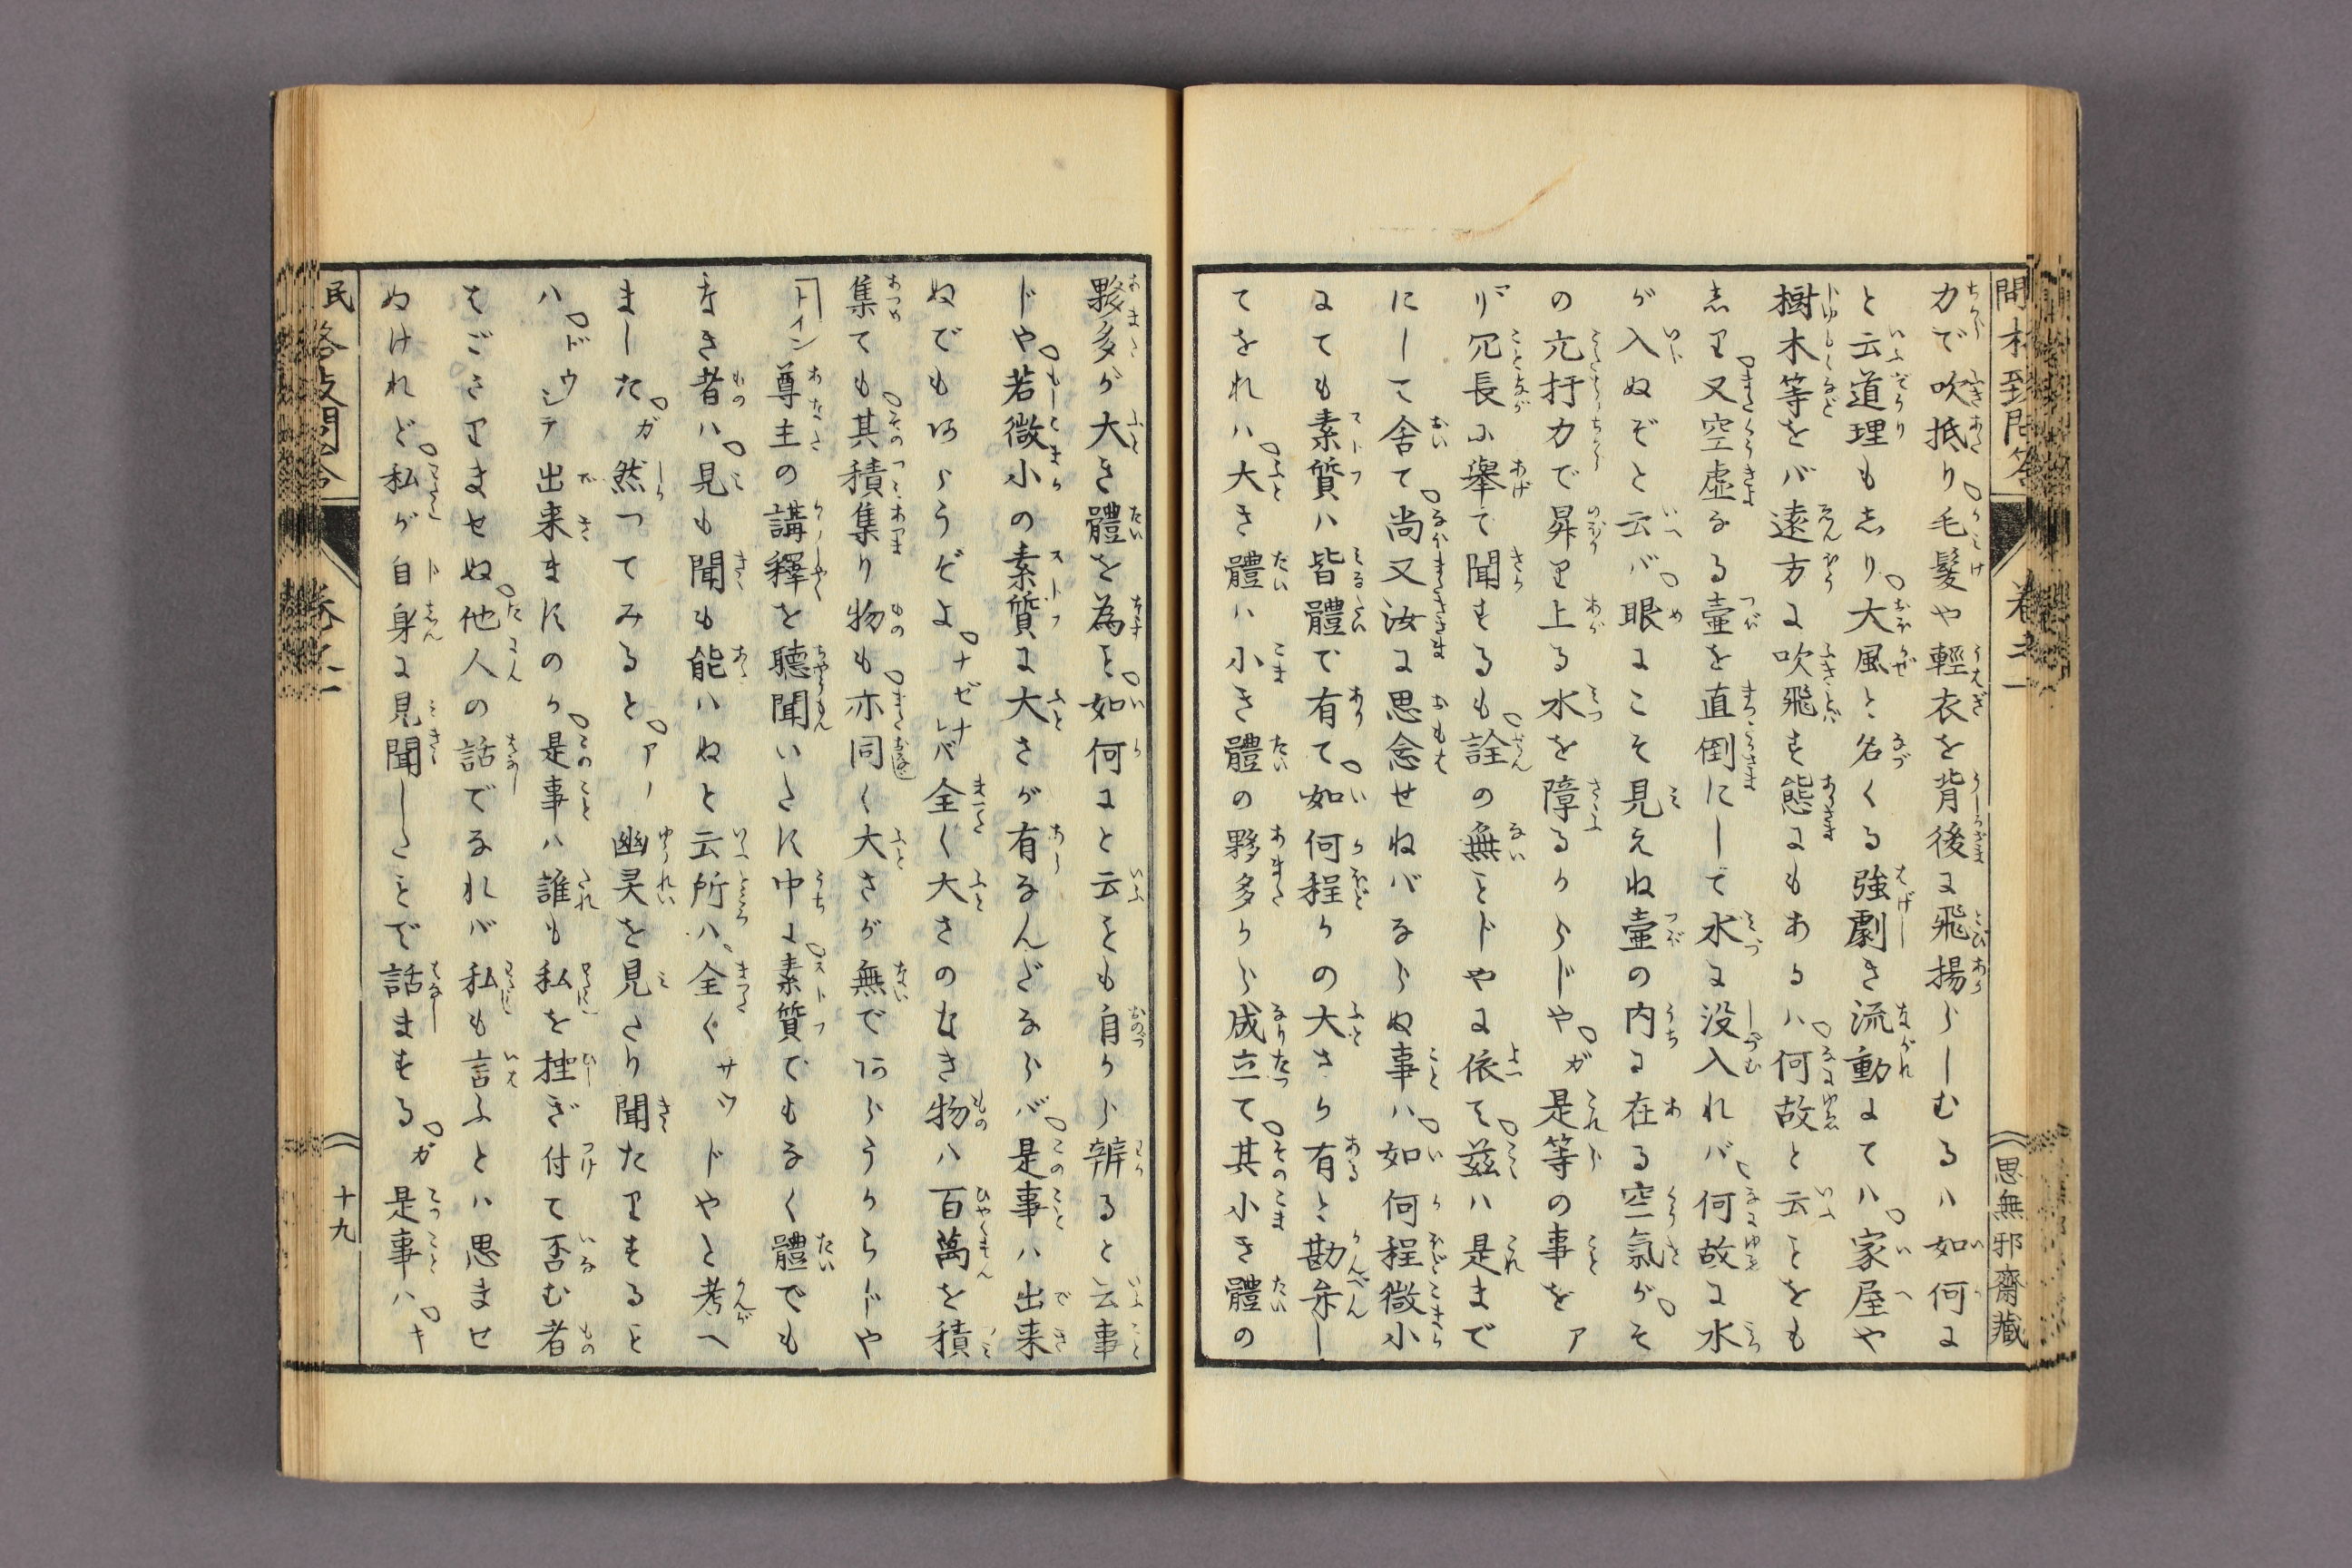 力で吹抵り毛髪や輕衣を背後に飛揚らしむるハ如何に
と云道理も志り大風と名くる強劇き流動にてハ家屋や
樹木等をバ遠方に吹飛す態にもあるハ何故と云ことをも
志り又空虚なる壷を直倒にして水に没入れバ何故に水
が入ぬぞと云バ眼にこそ見えね壷の内に在る空氣がそ
の亢扜力で昇り上る水を障るからじやガ是等の事をア
リ冗長に舉て聞するも詮の無ことじやに依て茲ハ是まで
にして舍て尚又汝に思念せねバならぬ事ハ如何程微小
にても素質ハ皆體で有て如何程かの大さり有と勘弁し
てをれハ大き體ハ小き體の夥多から成立て其小き體の
思無邪齋藏
夥多が大き體を為を如何にと云をも自から辨ると云事
じや若微小の素質に大さが有なんだならバ是事ハ出来
ぬでもあらうぞよナゼナレバ全く大さのなき物ハ百萬を積
集ても其積集り物も亦同く大さが無であらうからじや
「トイン尊主の講釋を聽聞いたす中に素質でもなく體でも
なき者ハ見も聞も能ハぬと云所ハ全くサウドやと考へ
ましたガ然つてみるとアノ幽灵を見たり聞たりすると
ハドウシテ出来ますのか是事ハ誰も私を挫ぎ付て否む者
もござりませぬ他人の話でなれバ私も言ふとハ思ませ
ぬけれど私が自身に見聞したことで話まするガ是事ハキ
十九